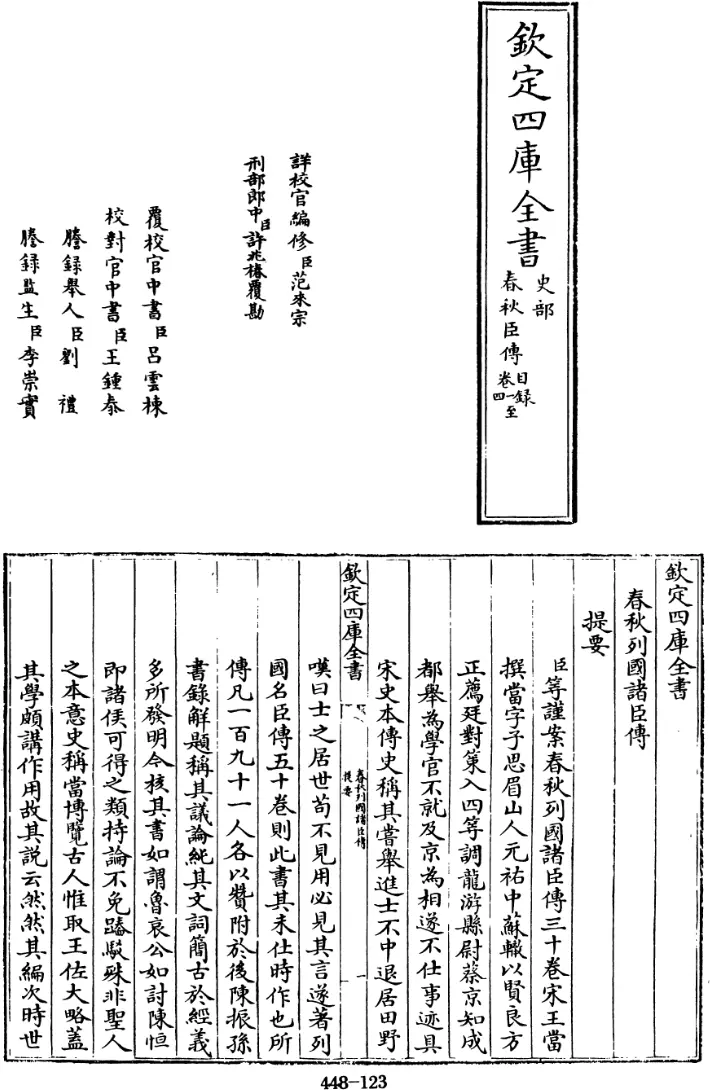 欽定四庫全書
史部
春秋臣傳
目録
卷一至
四
詳校官編修臣范來宗
刑部郎中臣許兆椿覆勘
覆校官中書臣呂雲棟
校對官中書臣王鍾泰
謄録舉人臣劉禮
謄録監生臣李崇實
欽定四庫全書
春秋列國諸臣傳
提要
臣等謹案春秋列國諸臣傳三十卷宋王當
撰當字子思眉山人元祐中蘇轍以賢良方
正薦廷對策入四等調龍游縣尉蔡京知成
都舉為學官不就及京為相遂不仕事迹具
宋史本傳史稱其嘗舉進士不中退居田野
欽定四庫全書
春秋列國諸臣傳
提要
一
嘆曰士之居世茍不見用必見其言遂著列
國名臣傳五十卷則此書其未仕時作也所
傳凡一百九十一人各以贊附於後陳振孫
書錄解題稱其議論純其文詞簡古於經義
多所發明今核其書如謂魯哀公如討陳恒
即諸侯可得之類持論不免踳駁殊非聖人
之本意史稱當博覽古人惟取王佐大略蓋
其學頗講作用故其説云然然其編次時世
448-123